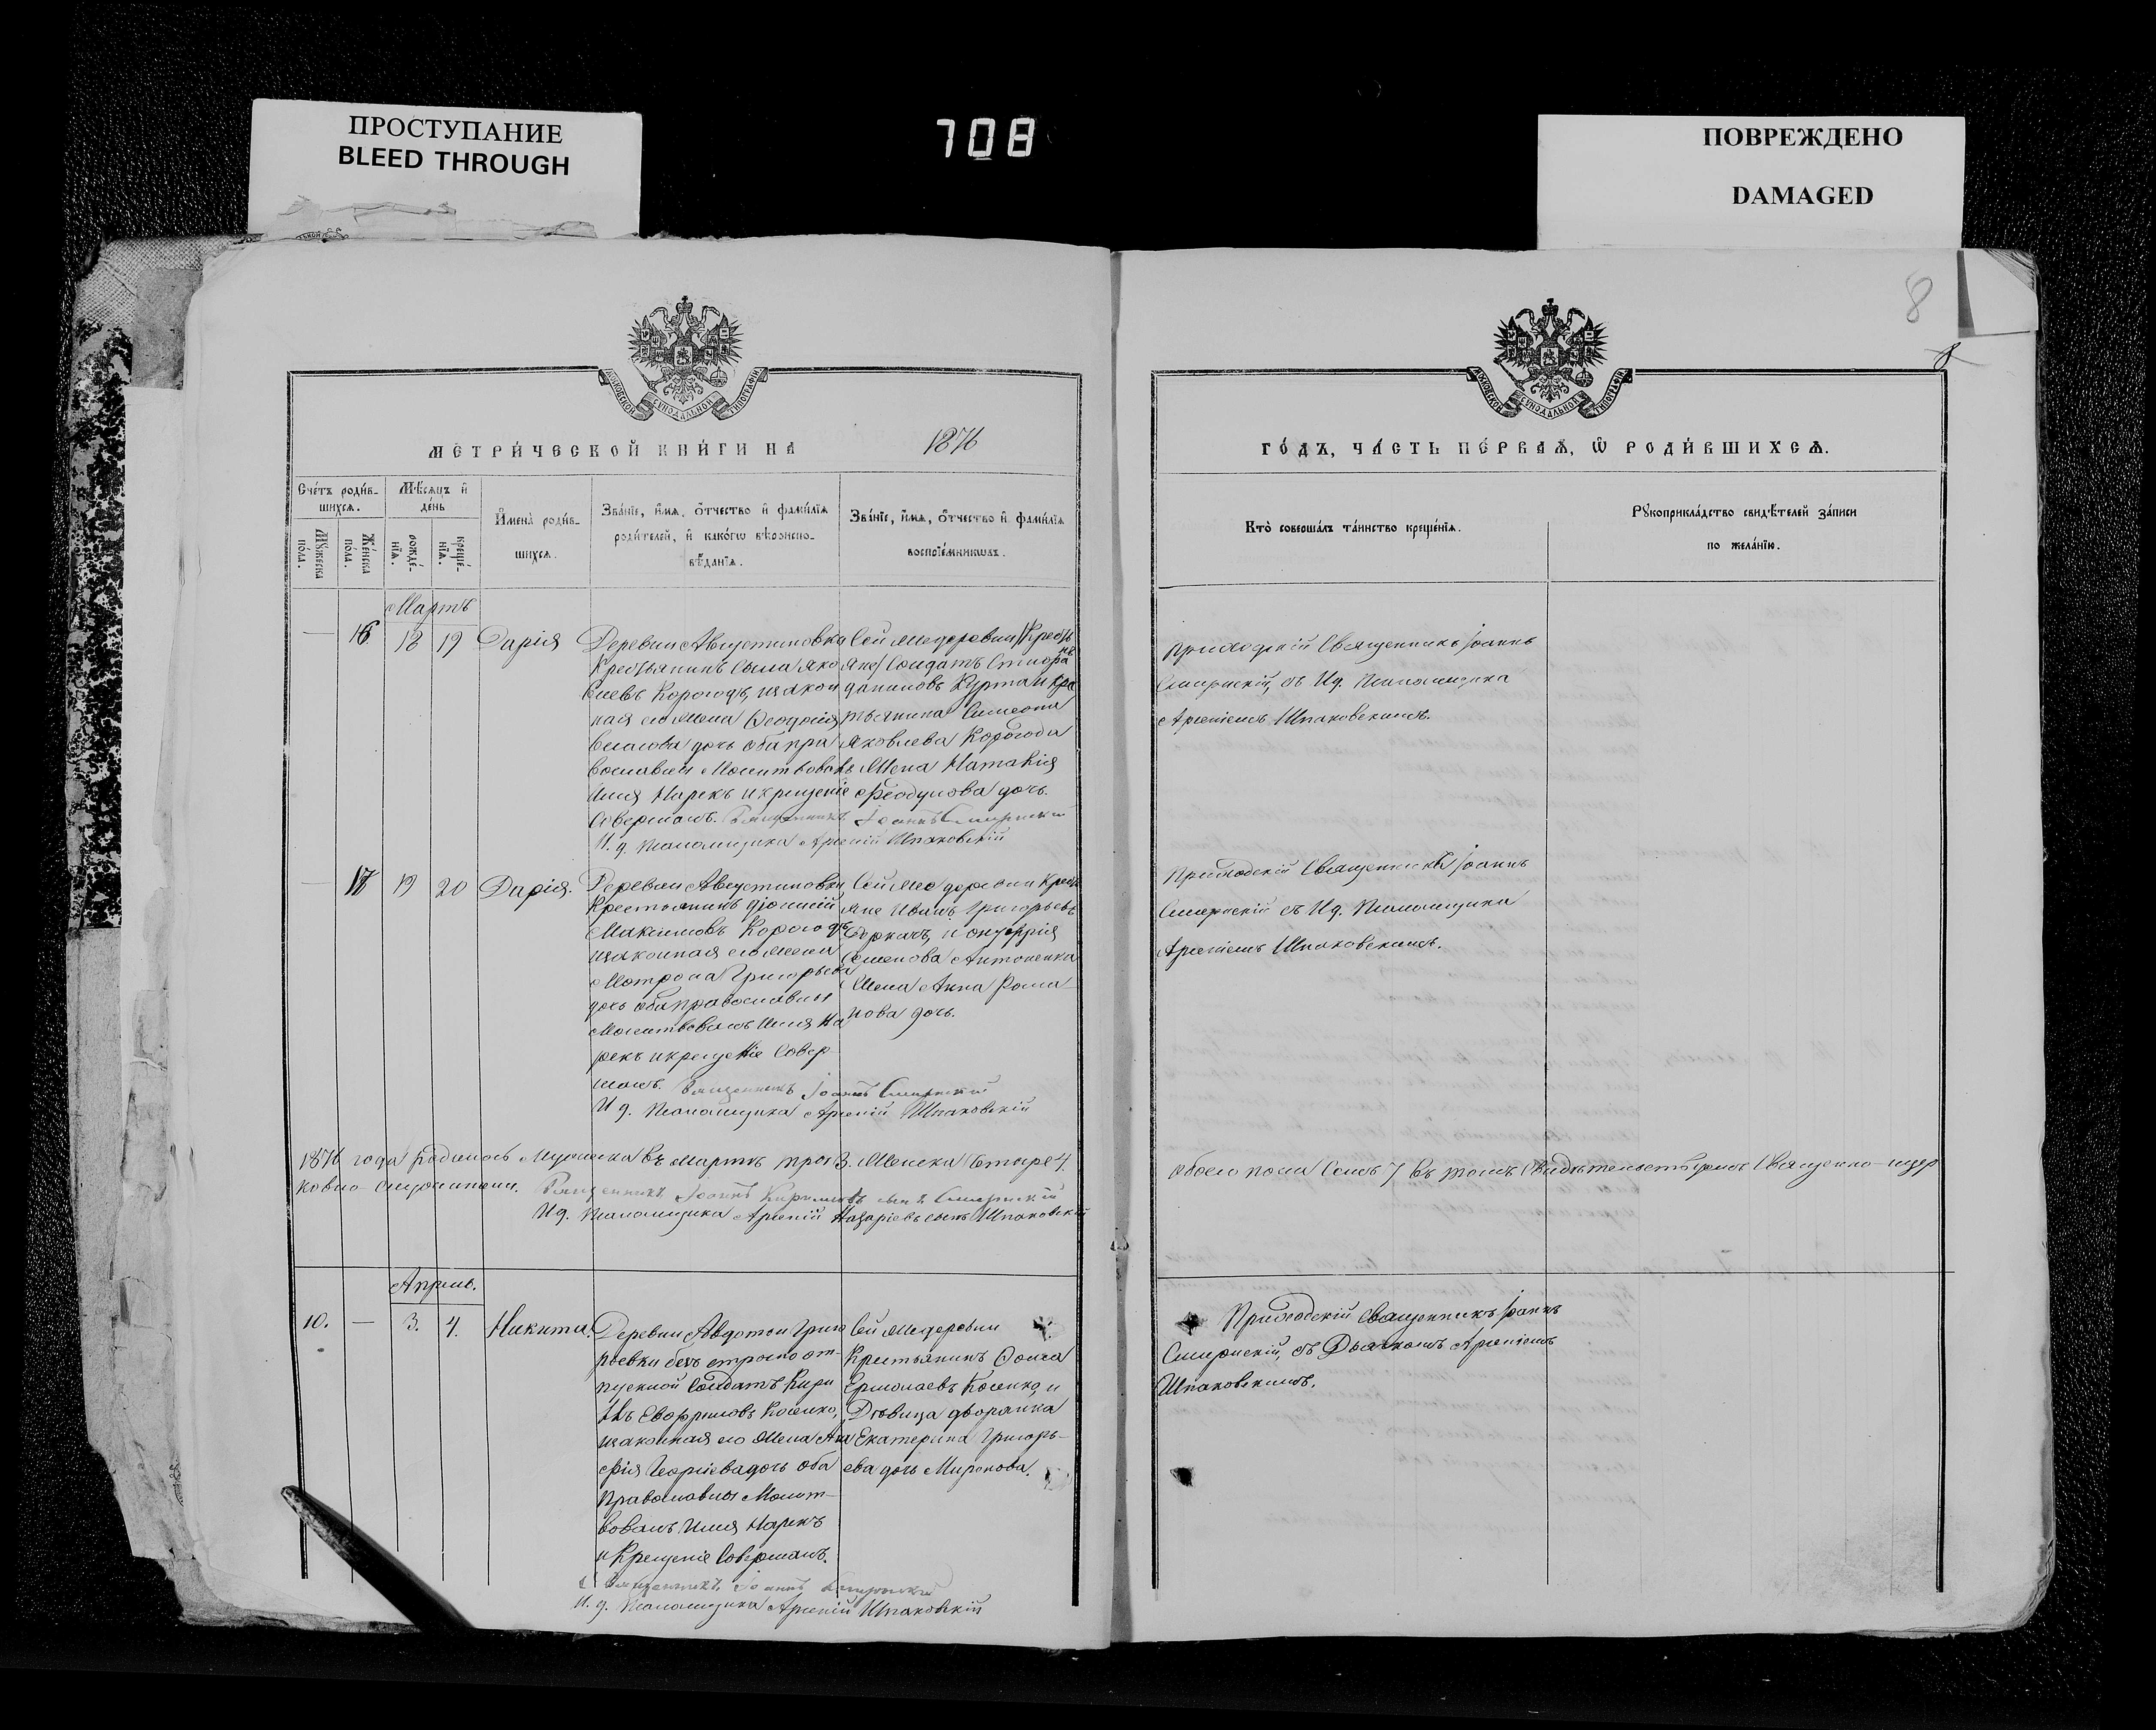 ПРОСТУПАНИЕ
BLEED THROUGH
708
ПОВРЕЖДЕНО
DAMAGED
8
8
МОСКОВСКОЙ СУНОДАЛЬНОЙ ТИПОГРАФІИ
МОСКОВСКОЙ СУНОДАЛЬНОЙ ТИПОГРАФІИ
МЕТРИ́ЧЕСКОЙ КНИ́ГИ НА 1876
ГО́ДЪ, ЧА́СТЬ ПЕ́РВАѦ, Ѿ РОДИ́ВШИХСѦ.
Сче́тъ роди́в-
шихсѧ.
Мꙋжеска по́ла.
Же́нска по́ла.
Мѣ́сѧцъ и
де́нь
рожде́-
нїѧ.
креще́-
нїѧ.
И҆мена̀ роди́в-
шихсѧ.
Зва́нїе, и҆́мѧ, ѻ҆́тчество и҆ фами́лїѧ
роди́телей, и҆ како́гѡ вѣроиспо-
вѣ́данїѧ.
Зва́нїе, и҆́мѧ, ѻ҆́тчество и҆ фами́лїѧ
воспрїе́мникѡвъ.
Кто̀ соверша́лъ та́инство креще́нїѧ.
Рꙋкоприкла́дство свидѣ́телей за́писи
по жела́нїю.
Мартъ
— 16 18 19 Дарія
Деревни Августиновка
Крестьянинъ Сыла Яко
влевъ Корогодъ, изакон
ная его Жена Ѳеодосія
Власова дочь оба пра
вославны Молитвовалъ
Имя Нарекъ и крещеніе
Совершалъ. Священникъ Іоаннъ Смирнскій
И. д. Паламщика Арсеній Шпаковскій
Сей же деревни Крестъ
яне Солдатъ
Курта и Кре
тьянина Симеона
Яковлева Корогода
Жена Наталія
Феодулова дочь.
Приходскій Священникъ Іоаннъ
Смирнскій, съ И.д. Паламщика
Арсеніемъ Шпаковскимъ.
— 17 19 20 Дарія.
Деревни Августиновки
Крестьянинъ
Максимовъ Корогодъ
изаконная его Жена
Мотрона Григорьева
дочь оба православны
Молитвовалъ Имя На
рекъ и крещеніе Совер
шалъ. Священникъ Іоаннъ Смирнскій
И д. Паламщика Арсеній Шпаковскій
Сей же деревни Кресть
яне Иванъ Григорьевъ
и Онуфрія
Семенова Антоненка
Жена Анна Рома
нова дочь.
Приходскій Священникъ Іоаннъ
Смирнскій съ И.д. Паламщика
Арсеніемъ Шпаковскимъ.
1876 года родилось Мужеска въ Мартѣ три 3. Женска Четыре 4.
обоего пола Семь 7 Въ томъ Свидѣтельствуемъ Священно-цер
ковно-служители. Священникъ Іоаннъ Кириловъ сынъ Смирнскій
И.д. Паламщика Арсеній Назаріевъ сынъ Шпаковскій
Апрель.
10. — 3. 4. Никита.
Деревни Авдотои Григо
рьевки безсрочно от-
пускной Солдатъ Кири
лъ Евфримовъ Косенко,
изаконная его Жена Ага
фія Георгіева дочь оба
Православны Молит-
вовалъ Имя Нарекъ
и Крещеніе Совершалъ.
Священникъ Іоаннъ Смирнскій
И. д. Паламщика Арсеній Шпаковскій
Сей же деревни
Крестьянинъ Ѳома
Ермолаевъ Косенко, и
Дѣвица дворянка
Екатерина Григорь-
ева дочь Миронова.
Приходскій Священникъ Іоаннъ
Смирнскій, съ Дьячкомъ Арсеніемъ
Шпаковскимъ.